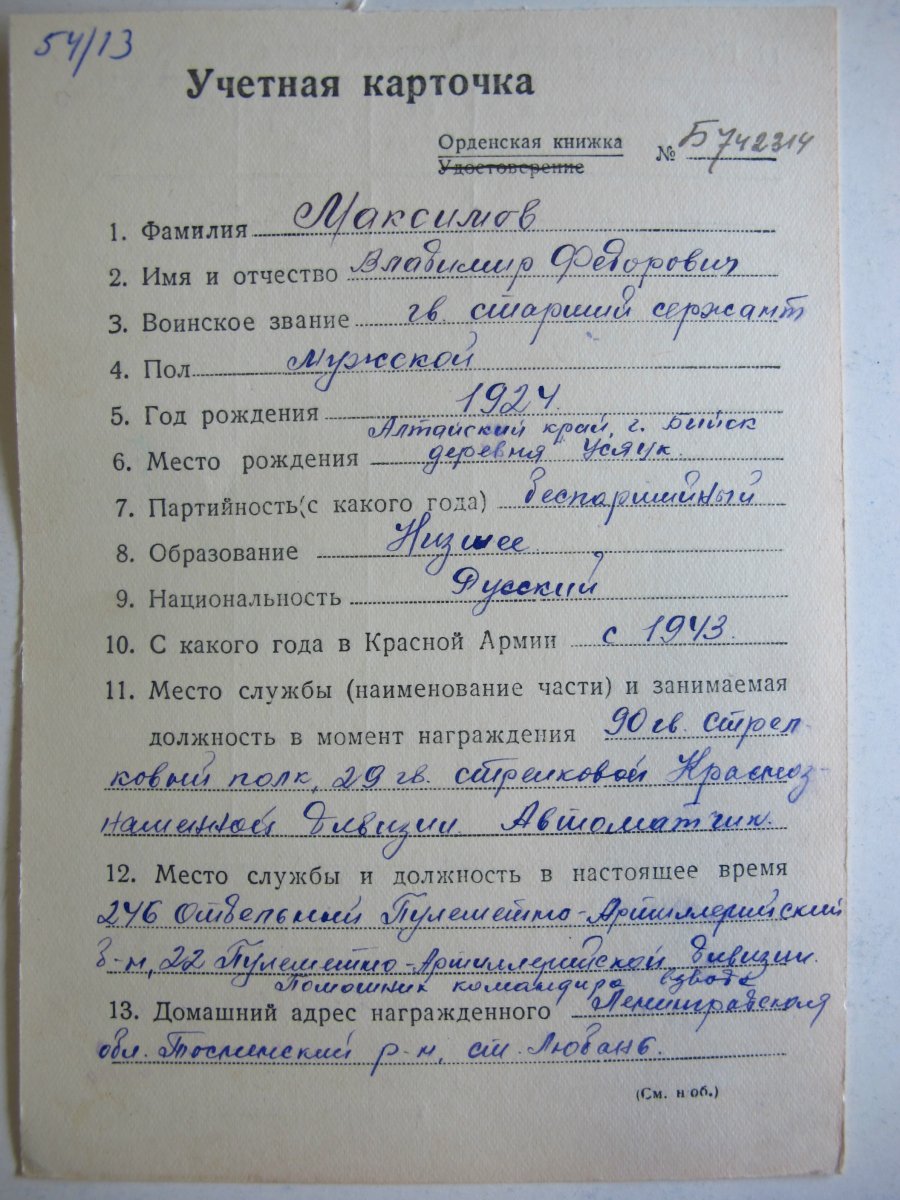 54/13
Учетная карточка
Орденская книжка
Удостоверение
№ Б742314
1. Фамилия Максимов
2. Имя и отчество Владимир Федорович
3. Воинское звание гв. старший сержант
4. Пол мужской
5. Год рождения 1924.
Алтайский край, г. Бийск
6. Место рождения деревня Усяук.
7. Партийность(с какого года) беспартийный
8. Образование Низшее.
9. Национальность Русский
10. С какого года в Красной Армии с 1943.
11. Место службы (наименование части) и занимаемая
должность в момент награждения 90 гв. стрел-
ковый полк, 29 гв. стрелковой Красноз-
наменной дивизии. Автоматчик.
12. Место службы и должность в настоящее время
246 Отдельный Пулеметно-Артиллерийский
б-н, 22 Пулеметно-Артиллерийской дивизии.
Помошник командира взвода
13. Домашний адрес награжденного Ленинградская
обл. Тоснинский р-н, ст. Любань.
(См. н об.)